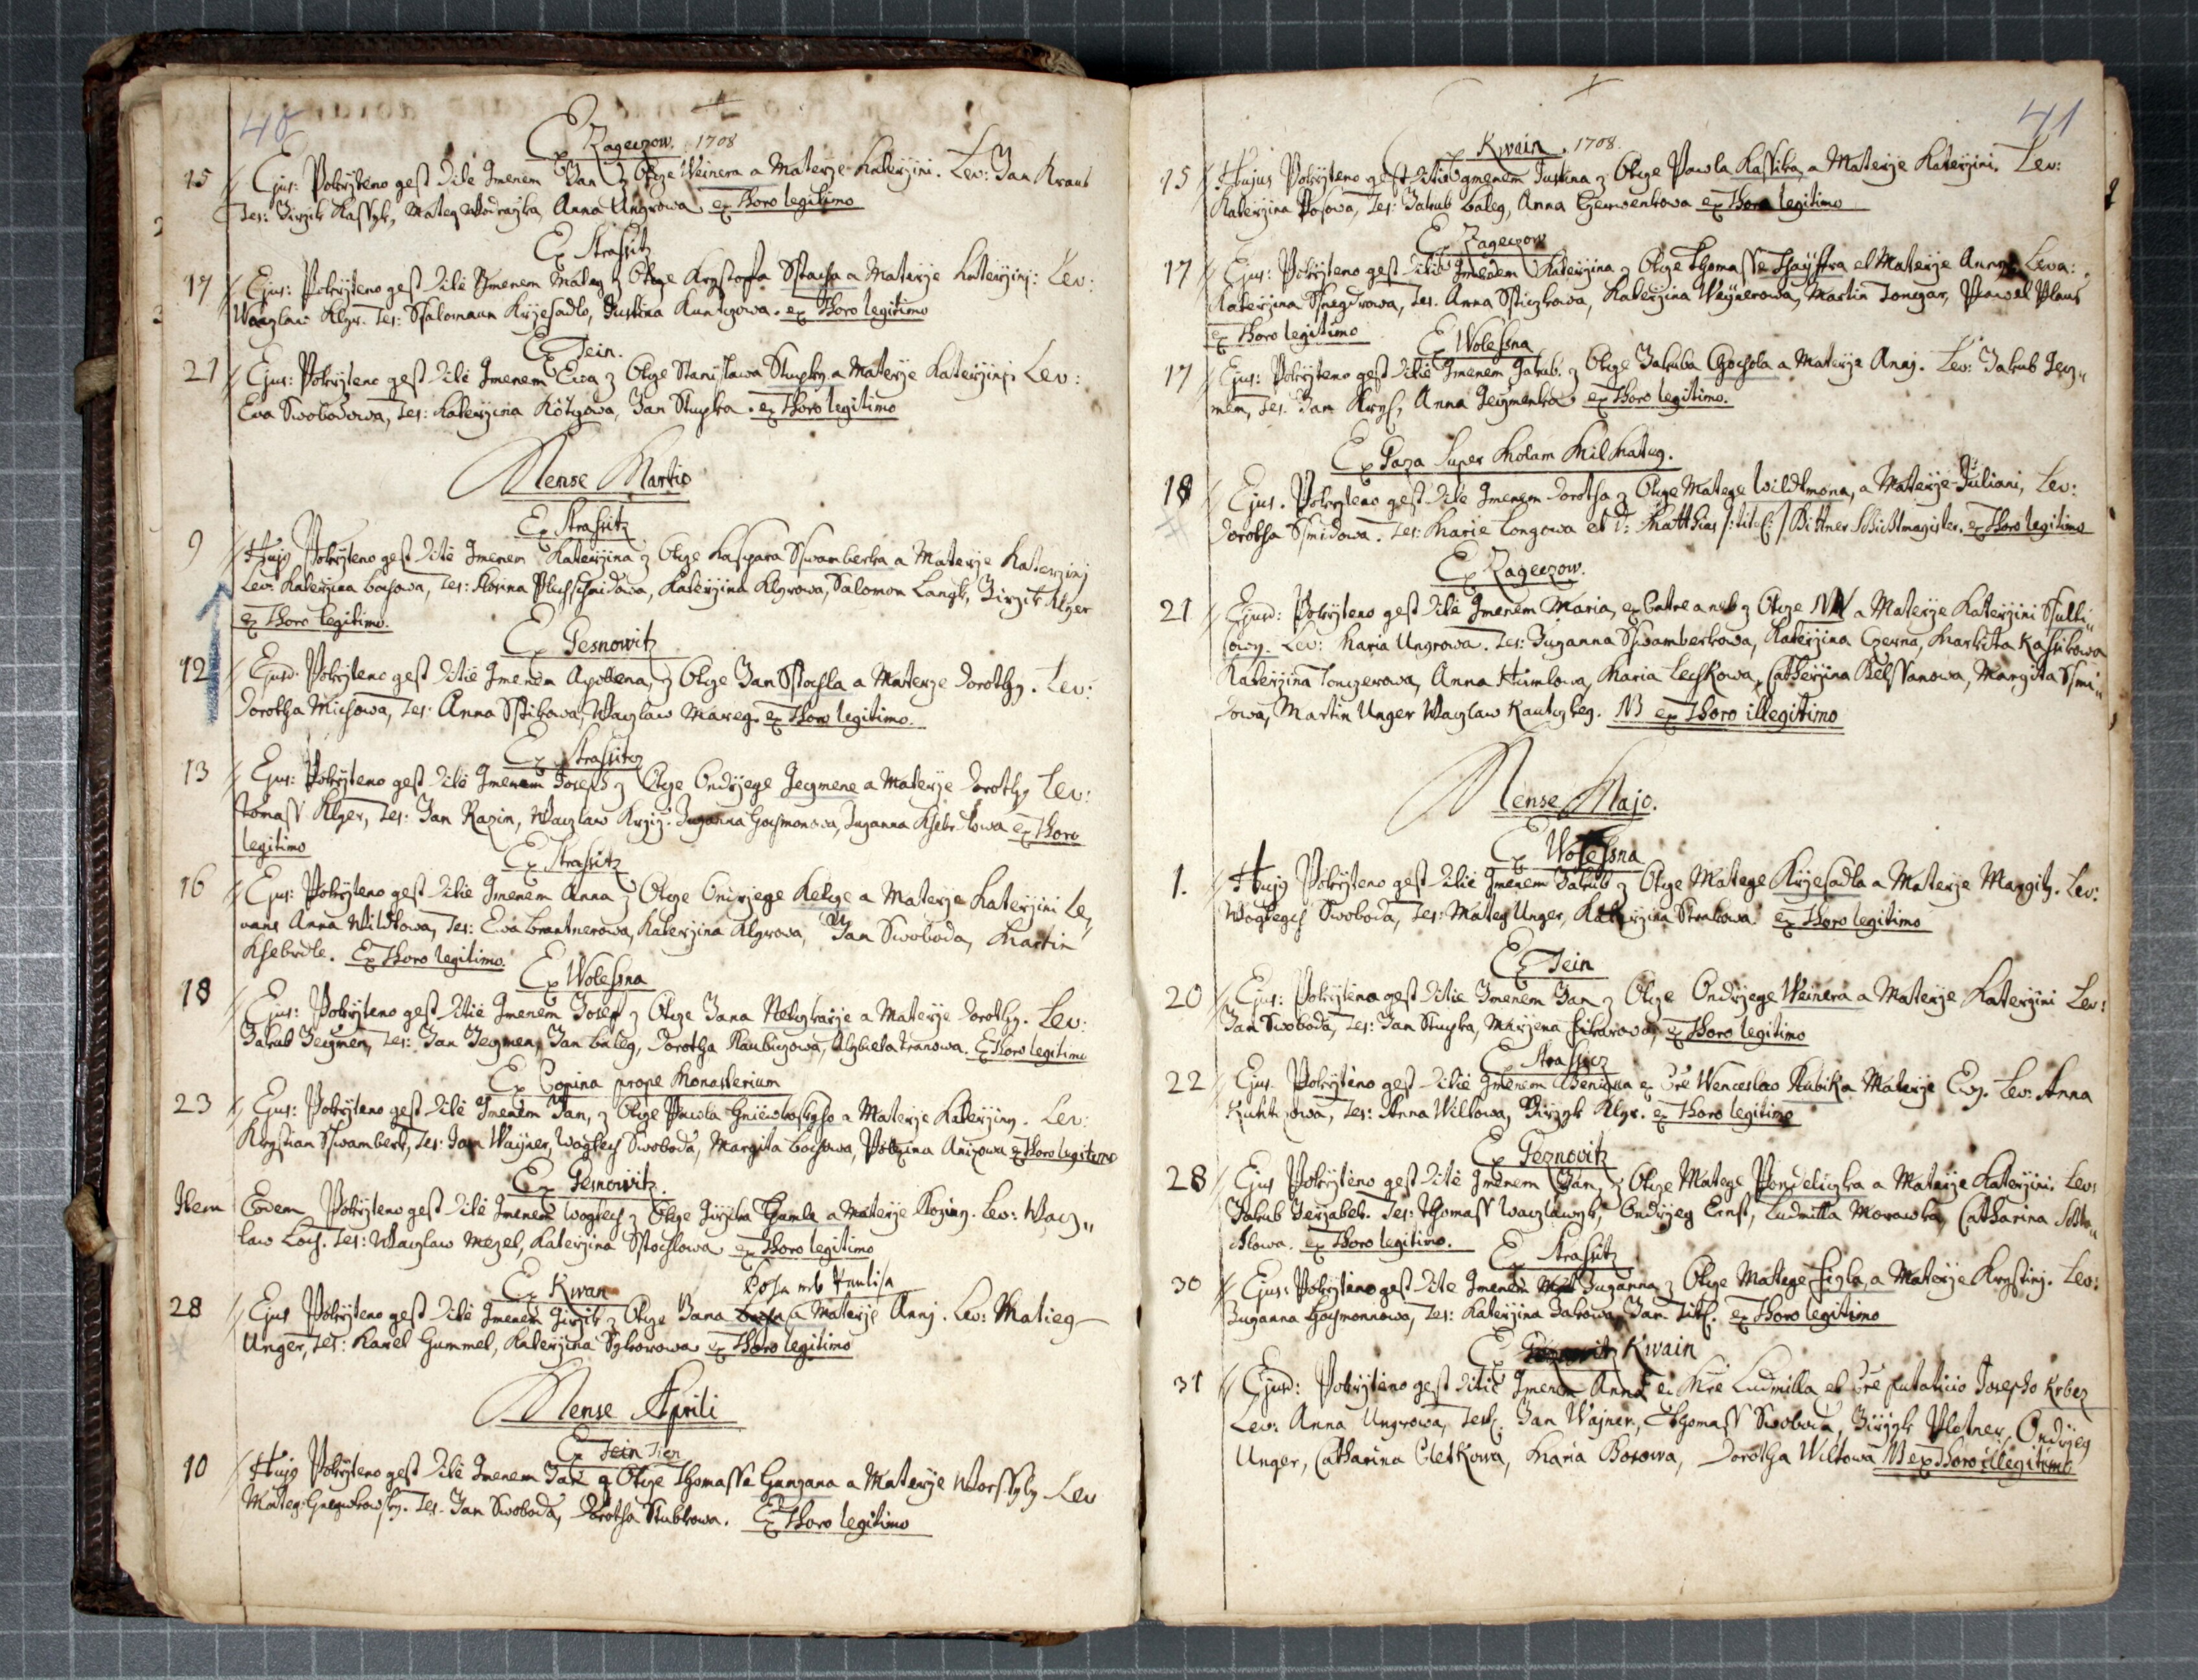 40
Ex Zageczow. 1708
15 Ejus: Pokrzteno gest Dite Jmenem Jan z Otcze Weinera a Materze Katerzini. Lev: Jan Kraus
Tes: Jirzik Kassyk, Mateg Wodragka, Anna Ungrowa ex Thoro legitimo
Ex Strassitz
17 Ejus: Pokrzteno gest Dite Jmenem Mateg z Otcze Krystofa Sstacha a Materze Katerzinj: Lev:
Waczlaw Klgr. Tes: Ssalomaun Krzesadlo, Justina Kuntzowa. ex Thoro legitimo
Ex Tein.
21 Ejus: Pokrzteno gest Dite Jmenem Eva z Otcze Stanislawa Stupky a Materze Katerzinj. Lev:
Eva Swobodowa, Tes: Katerzina Kötzowa, Jan Stupka. ex Thoro legitimo
Mense Martio
Ex Strassitz
9 Hujg Pokrzteno gest Dite Jmenem Katerzina z Otcze Kaspara Sswamberka a Materze Katerzinj
Lev: Katerzina Bochowa, Tes: Rosina Plechschmidowa, Katerzina Klgrowa, Salomon Langk, Jirzik Klger
ex Thoro legitimo.
Ex Tesnowitz
12 Ejusd. Pokrzteno gest Ditie Jmenem Apollena, z Otcze Jan Sstochla a Materze Dorothy. Lev:
Dorotha Michowa, Tes: Anna Sstikowa, Waczlaw Mareg. ex Thoro legitimo.
Ex Strassitz
13 Ejus: Pokrzteno gest Dite Jmenem Joseph z Otcze Ondrzege Jegmene a Materze Dorothy Lev:
Tomass Klger, Tes: Jan Razim, Waczlaw Krziz. Zuzanna Hochmonowa, Zuzanna Kssebrdlowa ex Thoro
legitimo
Ex Strassitz
16 Ejus: Pokrzteno gest Ditie Jmenem Anna z Otcze Ondrzege Kelige a Materze Katerzini Le,,
vans Anna Wildtowa, Tes: Eva Brantnerowa, Katerzina Klgrowa, Jan Swoboda, Martin
Kssebrdle. Ex Thoro legitimo.
Ex Wolessna
18 Ejus: Pokrzteno gest Ditie Jmenem Josef z Otcze Jana Netczkarze a Materze Dorothy. Lev:
Jakub Jegmen, Tes: Jan Jegmen, Jan Baleg, Dorotha Kaubczowa, Alzbieta Tranowa. Ex Thoro legitimo
Ex Popina prope Monasterium
23 Ejus: Pokrzteno gest Dite Jmenem Jan, z Otcze Pawla Hniewkowskyho a Materze Katerziny. Lev:
Krystian Sswamberk, Tes: Jan Wayner, Wogtech Swoboda, Margita Bochowa, Polyxina Anizowa ex Thoro legitimo
Ex Tesnowitz.
Item Eodem Pokrzteno gest Dite Jmenem Wogtech z Otcze Jirzika Hamla a Materze Roziny. Lev: Wacz,,
law Loch. Tes: Waczlaw Mezel, Katerzina Sstochlowa ex Thoro legitimo
Ex Kwan
28 Ejus Pokrzteno gest Dite Jmenem Girzik z Otcze Jana a Materze Anny. Lev: Matieg
Unger, Tes: Karel Hummel, Katerzina Sykorowa ex Thoro legitimo
Mense Aprili
Ex Tein Tien
10 Hujg Pokrzteno gest Dite Jmenem Jan z Otcze Thomasse Hanzana a Materze Worssyly Lev
Mateg Hnewkowsky. Tes. Jan Swoboda, Dorotha Stubkowa. Ex Thoro legitimo
41
Ex Kwain. 1708.
15 Hujus Pokrzteno gest Ditie Jmenem Justina z Otcze Pawla Kassika, a Materze Katerzini. Lev:
Katerzina Posowa, Tes: Jakub Baleg, Anna Czerwenkowa ex Thoro legitimo
Ex Zageczow
17 Ejus: Pokrzteno gest Ditie Jmenem Katerzina z Otcze Thomasse Haystra et Materze Anny Leva:
Katerzina Ssnegdrowa, Tes. Anna Ssticzkowa, Katerzina Weynerowa, Martin Tonczar, Pawel Plaus
ex Thoro legitimo
Ex Wolessna
17 Ejus: Pokrzteno gest Ditie Jmenem Jakub. z Otcze Jakuba Chochola a Materze Anny. Lev: Jakub Jecz,,
men, Tes. Jan Krys, Anna Jeczmenka ex Thoro legitimo.
Ex Paza super Molam Milhatug.
18 Ejus. Pokrzteno gest Dite Jmenem Dorotha z Otcze Matege Wildtmona, a Materze Juliani, Lev:
Dorotha Ssmidowa. Tes: Marie Longowa et D: Matthias /:tit:/ Bittner Schichtmagister. ex Thoro legitimo
Ex Zageczow.
21 Ejusd: Pokrzteno gest Dite Jmenem Maria, ex Patre aneb z Otcze NN a Materze Katerzini Ssulli,,
cowy. Lev: Maria Ungrowa. Tes: Zuzanna Sswamberkowa, Katerzina Czerna, Markita Kassikowa
Katerzina Tonczerowa, Anna Humlowa, Maria Leskowa, Catherzina Belssanowa, Margita Ssmi,,
dowa, Martin Unger Waczlaw Kautczkeg. NB ex Thoro illegitimo
Mense Majo.
Ex Wolessna
1. Hujg Pokrzteno gest Ditie Jmenem Jakub z Otcze Matege Krzesadla a Materze Margity. Lev:
Wogtegch Swoboda, Tes: Mateg Unger, Katerzina Strakowa ex Thoro legitimo
Ex Tein
20 Ejus: Pokrzteno gest Ditie Jmenem Jan z Otcze Ondrzege Weinera a Materze Katerzini Lev:
Jan Swoboda, Tes: Jan Stupka, Marzena Fikarowa, ex Thoro legitimo
Ex Strassicz
22 Ejus. Pokrzteno gest Ditie Jmenem Benigna ex Pre Wenceslao Kubika Materze Evy. Lev: Anna
Tes: Anna Wiltowa, Girzyk Klgr. ex Thoro legitimo
Ex Peznovitz
28 Ejus Pokrzteno gest Dite Jmenem Jan, z Otcze Matege Pondeliczka a Materze Katerzini. Lev:
Jakub Jerzabek. Tes: Thomass Waczlawyk, Ondrzeg Ernst, Ludmilla Morawka, Catharina Ssto,,
chlowa. ex Thoro legitimo.
Ex Strassitz
30 Ejus: Pokrzteno gest Dite Jmenem Zuzanna z Otcze Matege Figla, a Materze Krystiny. Lev:
Zuzanna Hochmonnowa, Tes: Katerzina Jakowa, Jan Titl. ex Thoro legitimo
Ex Kwain
31 Ejusd: Pokrzteno gest Ditie Jmenem Anna ex Mre Ludmilla et Pre putaticio Josepho Krbez
Lev: Anna Ungrowa, Test. Jan Wajner, Thomass Swoboda, Girzyk Pletner, Ondrzeg
Unger, Catharina Cletkowa, Maria Bosowa, Dorotha Wiltowa NB ex Thoro illegitimo